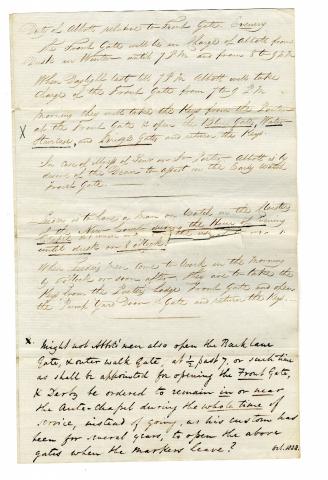 Duty of Abbott relative to Front Gates Evening
The Front Gates will be in charge of Abbott from
Dusk in Winter until 7 P M and from 8 to 9 P M
When Daylight lasts till 7 P M Abbott will take
Charge of the Front Gate from 7 to 9 P M.
Morning they will take the Keys from the Porter
at the Front Gate & open the Blue Gate, Water
X
and Bridge Gate and return the Keys
In case of illness of Under Porter Abbott is by
desire of the Dean to assist in the Early Watch
Front Gate
is to have a man on watch in the
of the New Court during the Hour of Evening
until dusk or 8 o'Clock
When men come to work in the Morning
by 6 o'Clock or soon after, they are to take the
Keys from the Porters Lodge Front Gate and open
the Pump Yard Door & Gate and return the Keys.
x. Might not Abbott's men also open the Back lane
Gate, & outer walk Gate, at ½ past 7, or such time
as shall be appointed for opening the Front Gate,
& Derby be ordered to remain in or near
the Ante-Chapel during the whole time of
service, instead of going, as his custom has
been for several years, to open the above
gates when the Markers leave?